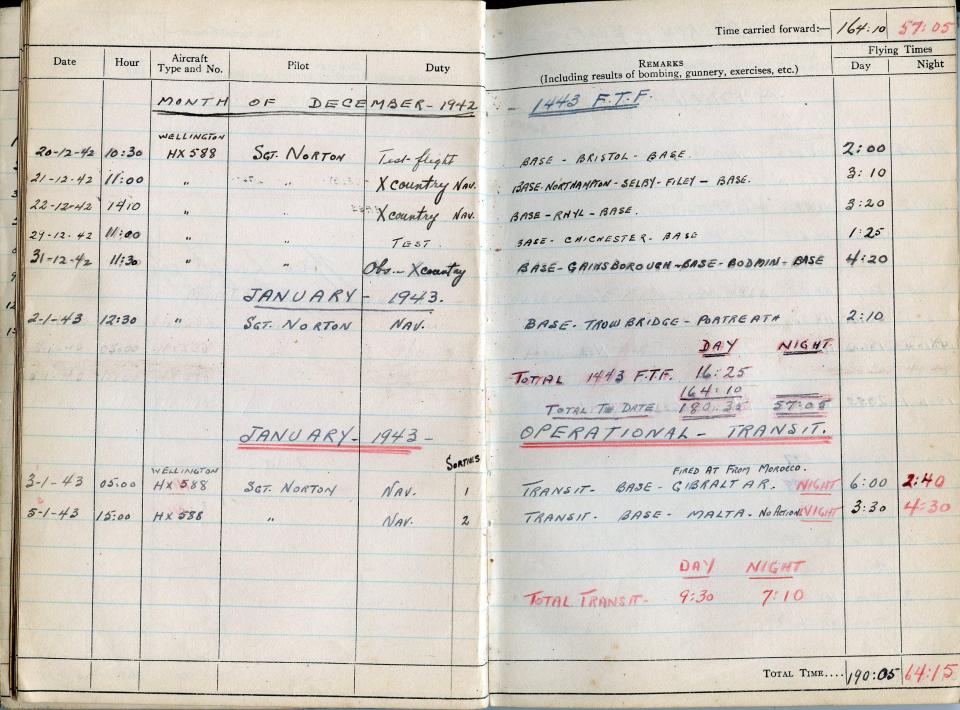 Time carried forward:— 164:10 57:05
Flying Times
Date Hour Aircraft Type and No. Pilot Duty REMARKS (Including results of bombing, gunnery, exercises, etc.) Day Night
MONTH OF DECEMBER - 1942 1443 F.T.F.
WELLINGTON
20-12-42 10:30 HX588 SGT. NORTON Test-flight BASE - BRISTOL - BASE. 2:00
21-12-42 11:00 " " X country NAV. BASE-NORTHAMPTON-SELBY-FILEY - BASE. 3:10
22-12-42 1410 " " X country NAV. BASE-RHYL-BASE. 3:20
29-12-42 11:00 " " TEST BASE - CHICHESTER - BASE 1:25
31-12-42 11:30 " " Obs - X country BASE-GAINSBOROUGH-BASE-BODMIN-BASE 4:20
JANUARY - 1943.
2-1-43 12:30 " SGT. NORTON NAV. BASE - TROWBRIDGE - PORTREATH 2:10
DAY NIGHT
TOTAL 1443 F.T.F. 16:25
164:10
TOTAL TO DATE 180:35 57:05
JANUARY - 1943 - OPERATIONAL - TRANSIT.
SORTIES
WELLINGTON FIRED AT FROM MOROCCO.
3-1-43 05:00 HX588 SGT. NORTON NAV. 1 TRANSIT - BASE - GIBRALTAR. NIGHT 6:00 2:40
5-1-43 15:00 HX588 " NAV. 2 TRANSIT - BASE - MALTA - NO ACTION NIGHT 3:30 4:30
DAY NIGHT
TOTAL TRANSIT - 9:30 7:10
TOTAL TIME.... 190:05 64:15